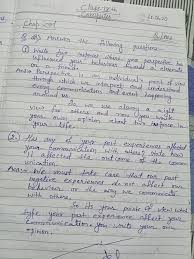 Class IX-th
Computer
Chap 2nd
Q Answer the following questions-
Write two reasons about your perspective be
influenced your behaviour as a channels
on a
Ans Perspective is an individual's point of view
through which we interpret and understand
every communication and event happening
around us.
So we use always a right
view for others and now you write
your own opinion about two reasons in
your life.
Has any of your past experiences affected
your communication with others? State how
it affected the outcome of the commun-
ication.
Ans We must take care that our past
negative experiences do not affect our
behaviour or the way we communicate
with others.
So its your point of view what
type your past experience affect your
communication you write your own
opinion.